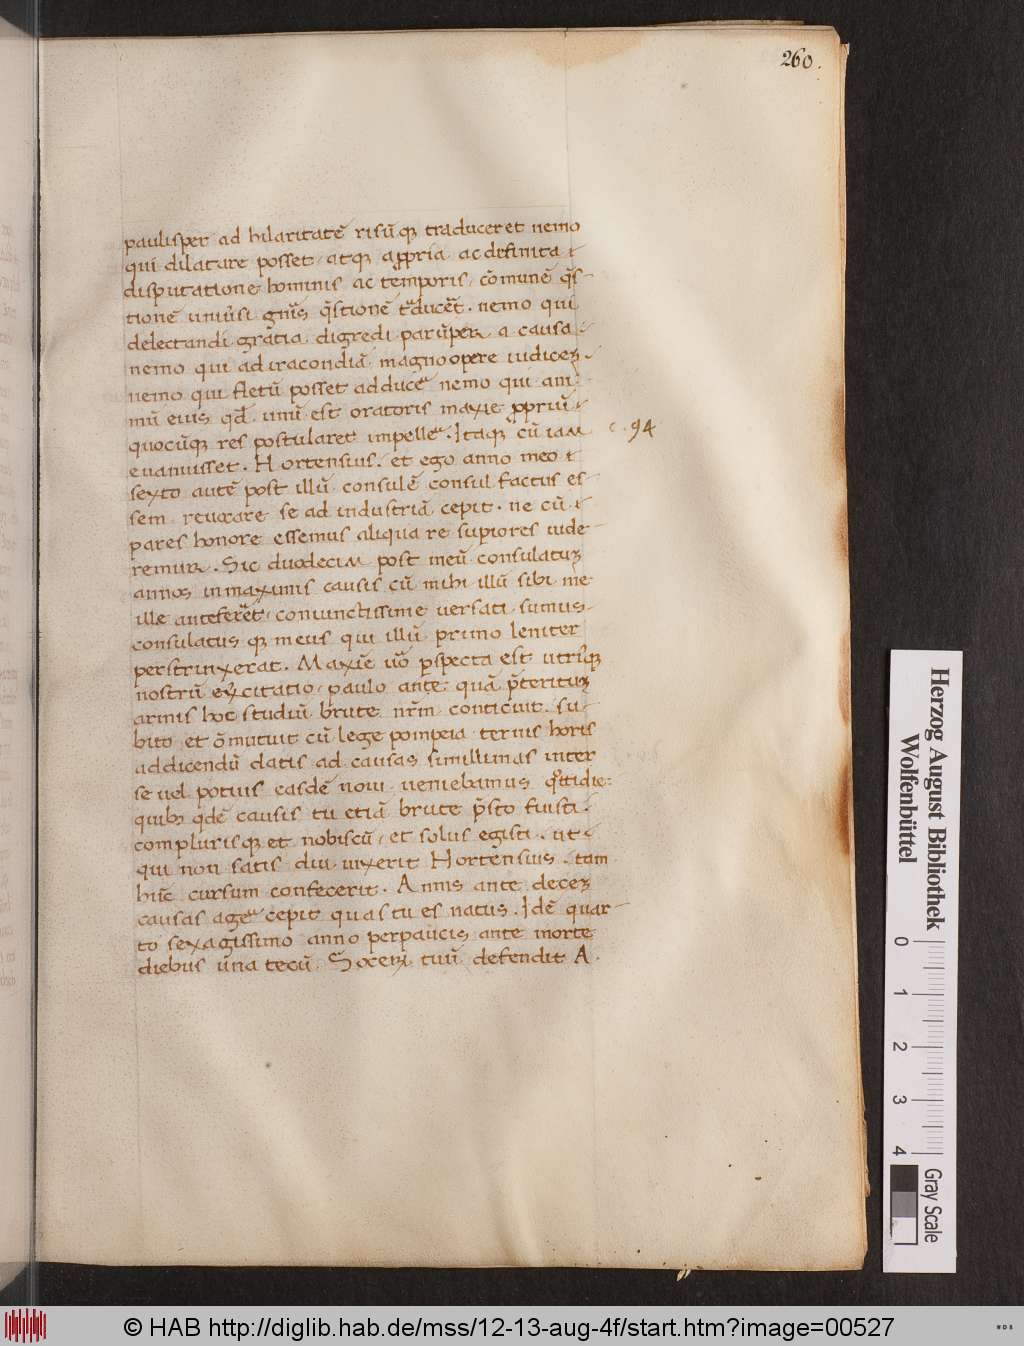 260.
paulisper ad hilaritatē risūq; traduceret nemo
qui dilatare posset atq; a ppria ac definita
disputatione hominis ac temporis, cōmunē q̄s-
tionē uniūsi gn̄is q̄stionē t̄ducēt. nemo qui
delectandi gratia digredi parūper a causa
nemo qui ad iracondiā magno opere iudicez
nemo qui fletū posset adducē nemo qui ani
mū eius qd̄ unū est oratoris maxīe ppriū
quocūq; res postularet impellē. Itaq; cū iam
c. 94
euanuisset. Hortensius. et ego anno meo
sexto autē post illū consulē consul factus es
sem reuocare se ad industriā cepit. ne cū
pares honore essemus aliqua re supiores uide
remur. Sic duodecim post meū consulatuz
annos in maximis causis cū mihi illū sibi me
ille anteferēt coniunctissime uersati sumus
consulatus q; meus qui illū primo leniter
perstrinxerat. Maxiē uō pspecta est utriusq;
nostrū exercitatio paulo ante quā p̄terituz
armis hoc studiū brute nr̄m conticuit su
bito et ōmutuit cū lege pompeia ternis horis
ad dicendū datis ad causas simillimas inter
se uel potius easdē noui ueniebamus q̄tidie
quib; q̄dē causis tu etiā brute p̄sto fuisti
complurisq; et nobiscū et solus egisti. ut
qui non satis diu uixerit Hortensius. tam
hūc cursum confecerit. Annis ante decez
causas agē cepit quas tu es natus. Idē quar-
to sexagissimo anno perpaucis ante morte
diebus una tecū. Socerz tuū defendit A.
Herzog August Bibliothek
Wolfenbüttel
0 1 2 3 4
Gray Scale
© HAB http://diglib.hab.de/mss/12-13-aug-4f/start.htm?image=00527